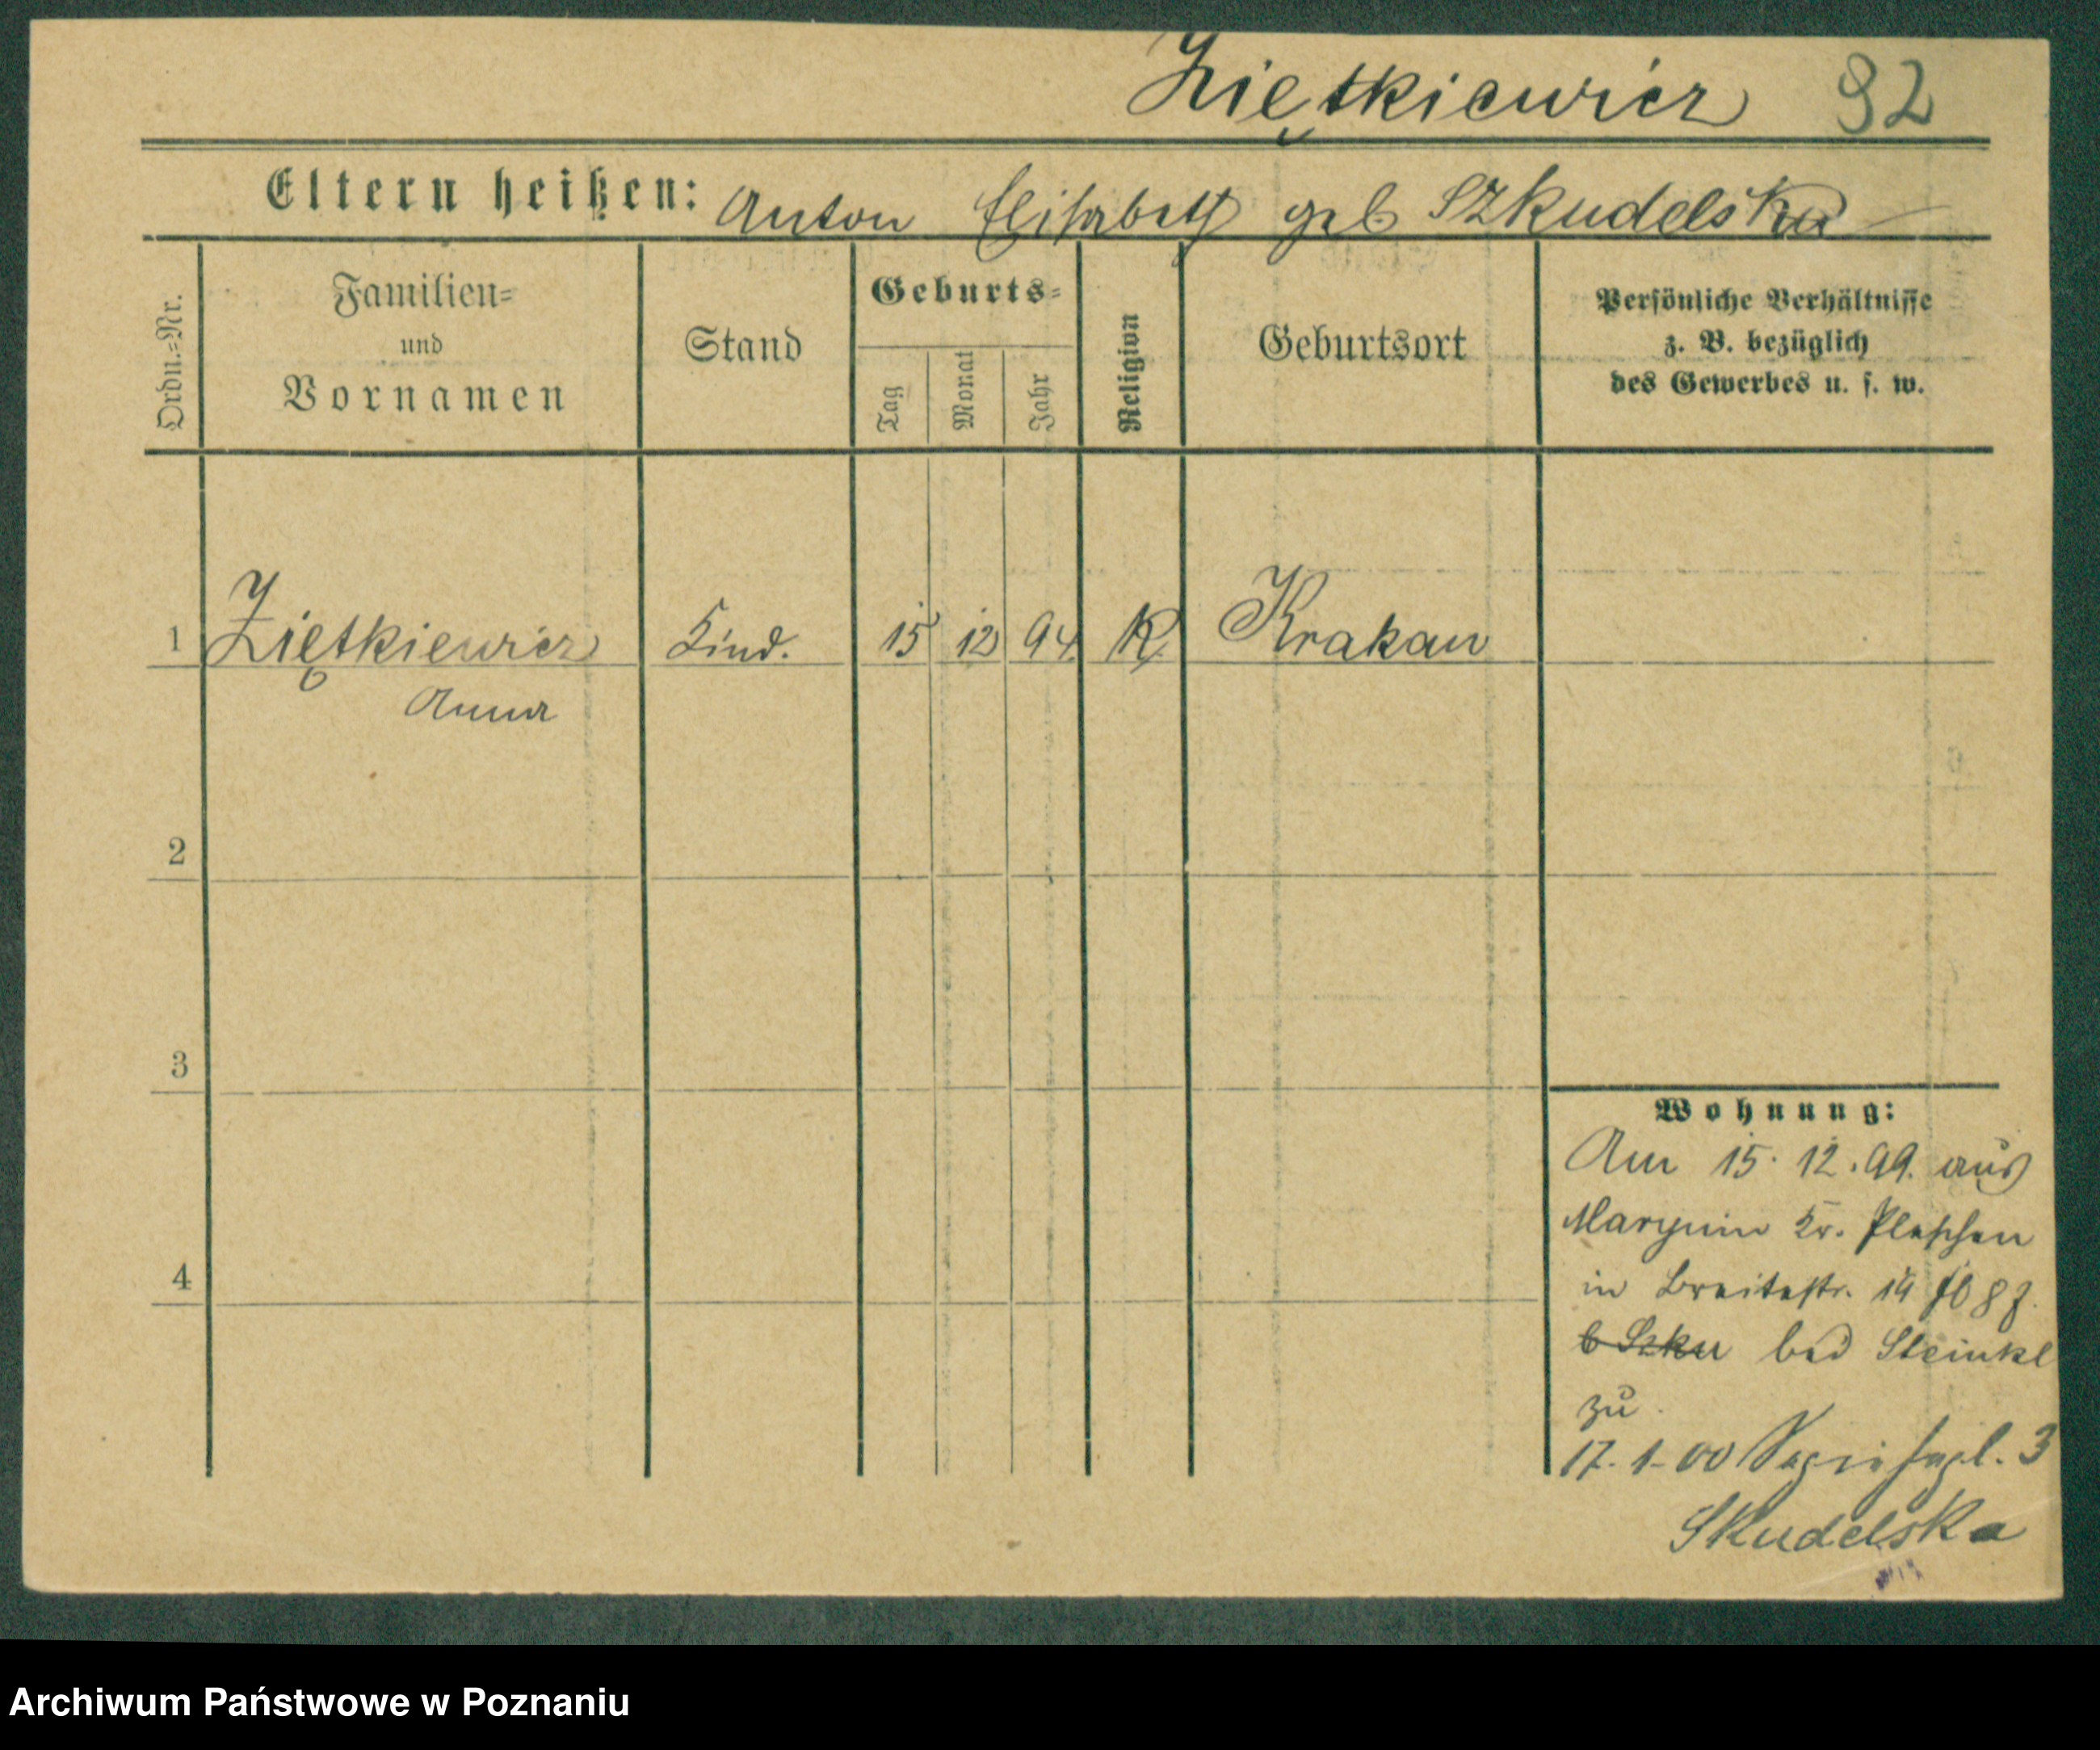 Ziętkiewicz 92
Eltern heißen: Anton Elisabeth geb Szkudelska
Ordn.=Nr.
Familien=
und
Vornamen
Stand
Geburts=
Tag
Monat
Jahr
Religion
Geburtsort
Persönliche Verhältnisse
z. B. bezüglich
des Gewerbes u. s. w.
1 Ziętkiewicz Kind. 15 12 94. K. Krakau
Anna
2
3
4
Wohnung:
Am 15. 12. 99. aus
Marynin Kr. Pleschen
in Breitestr. 14
bei Steinkel
zu.
17. 1. 00 3
Skudelska
Archiwum Państwowe w Poznaniu